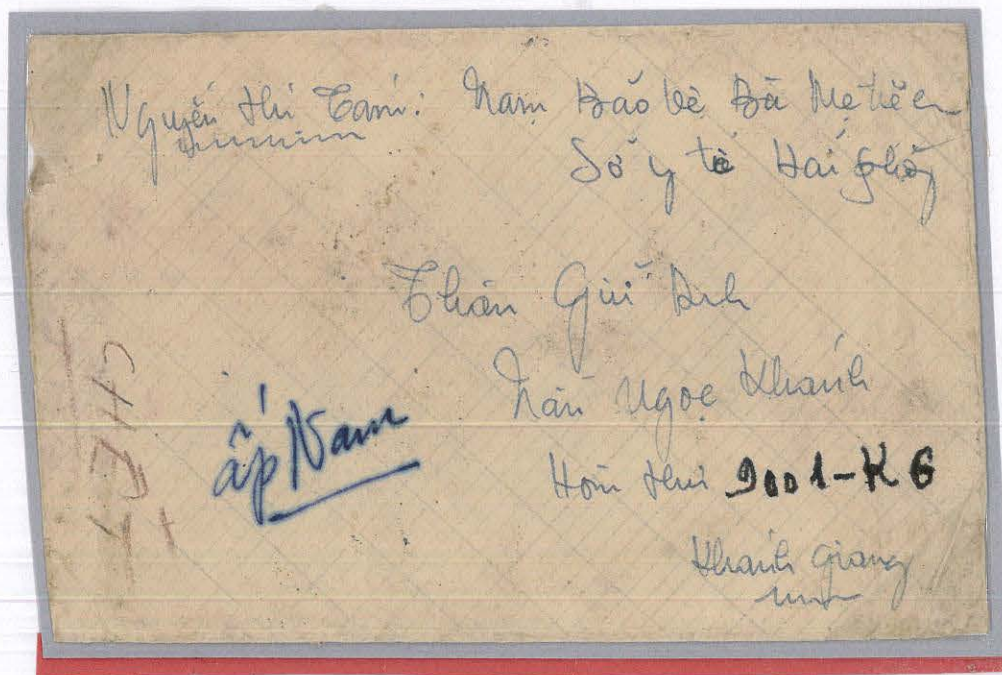 Nguyễn thị Tám: Trạm Bảo vệ Bà Mẹ trẻ em
Sở y tế Hải Phòng
Thân Gửi Anh
Trần Ngọc Khánh
Hòm thư 9001-K6
Khánh Giang
ấp Nam